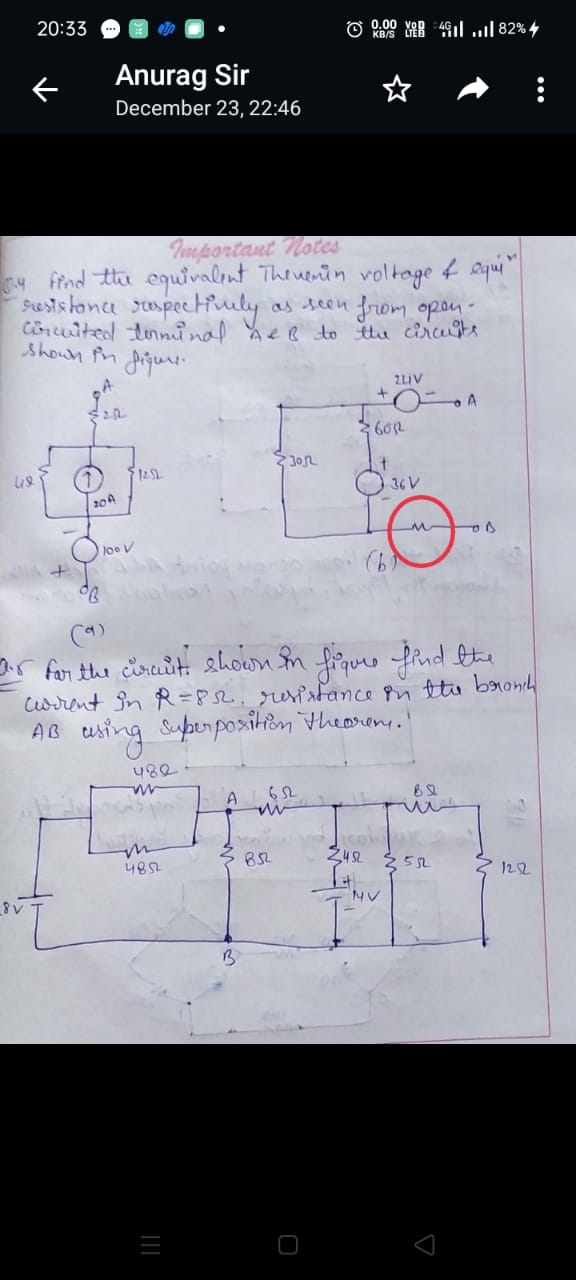 20:33
0.00 KB/S
4G
82%
Anurag Sir
December 23, 22:46
Important Notes
Q.4 find the equivalent Thevenin voltage & equiv
resistance respectively as seen from open-
circuited terminal A & B to the circuits
shown in figure.
A
2Ω
4Ω
20A
12Ω
-
100V
+
B
(a)
24V
+ -
A
30Ω
60Ω
+
36V
-
B
(b)
Q.5 for the circuit shown in figure find the
current in R=8Ω. resistance in the branch
AB using superposition theorem.
48Ω
48Ω
A 6Ω 8Ω
8Ω
4Ω
5Ω
12Ω
8V
+
-
B